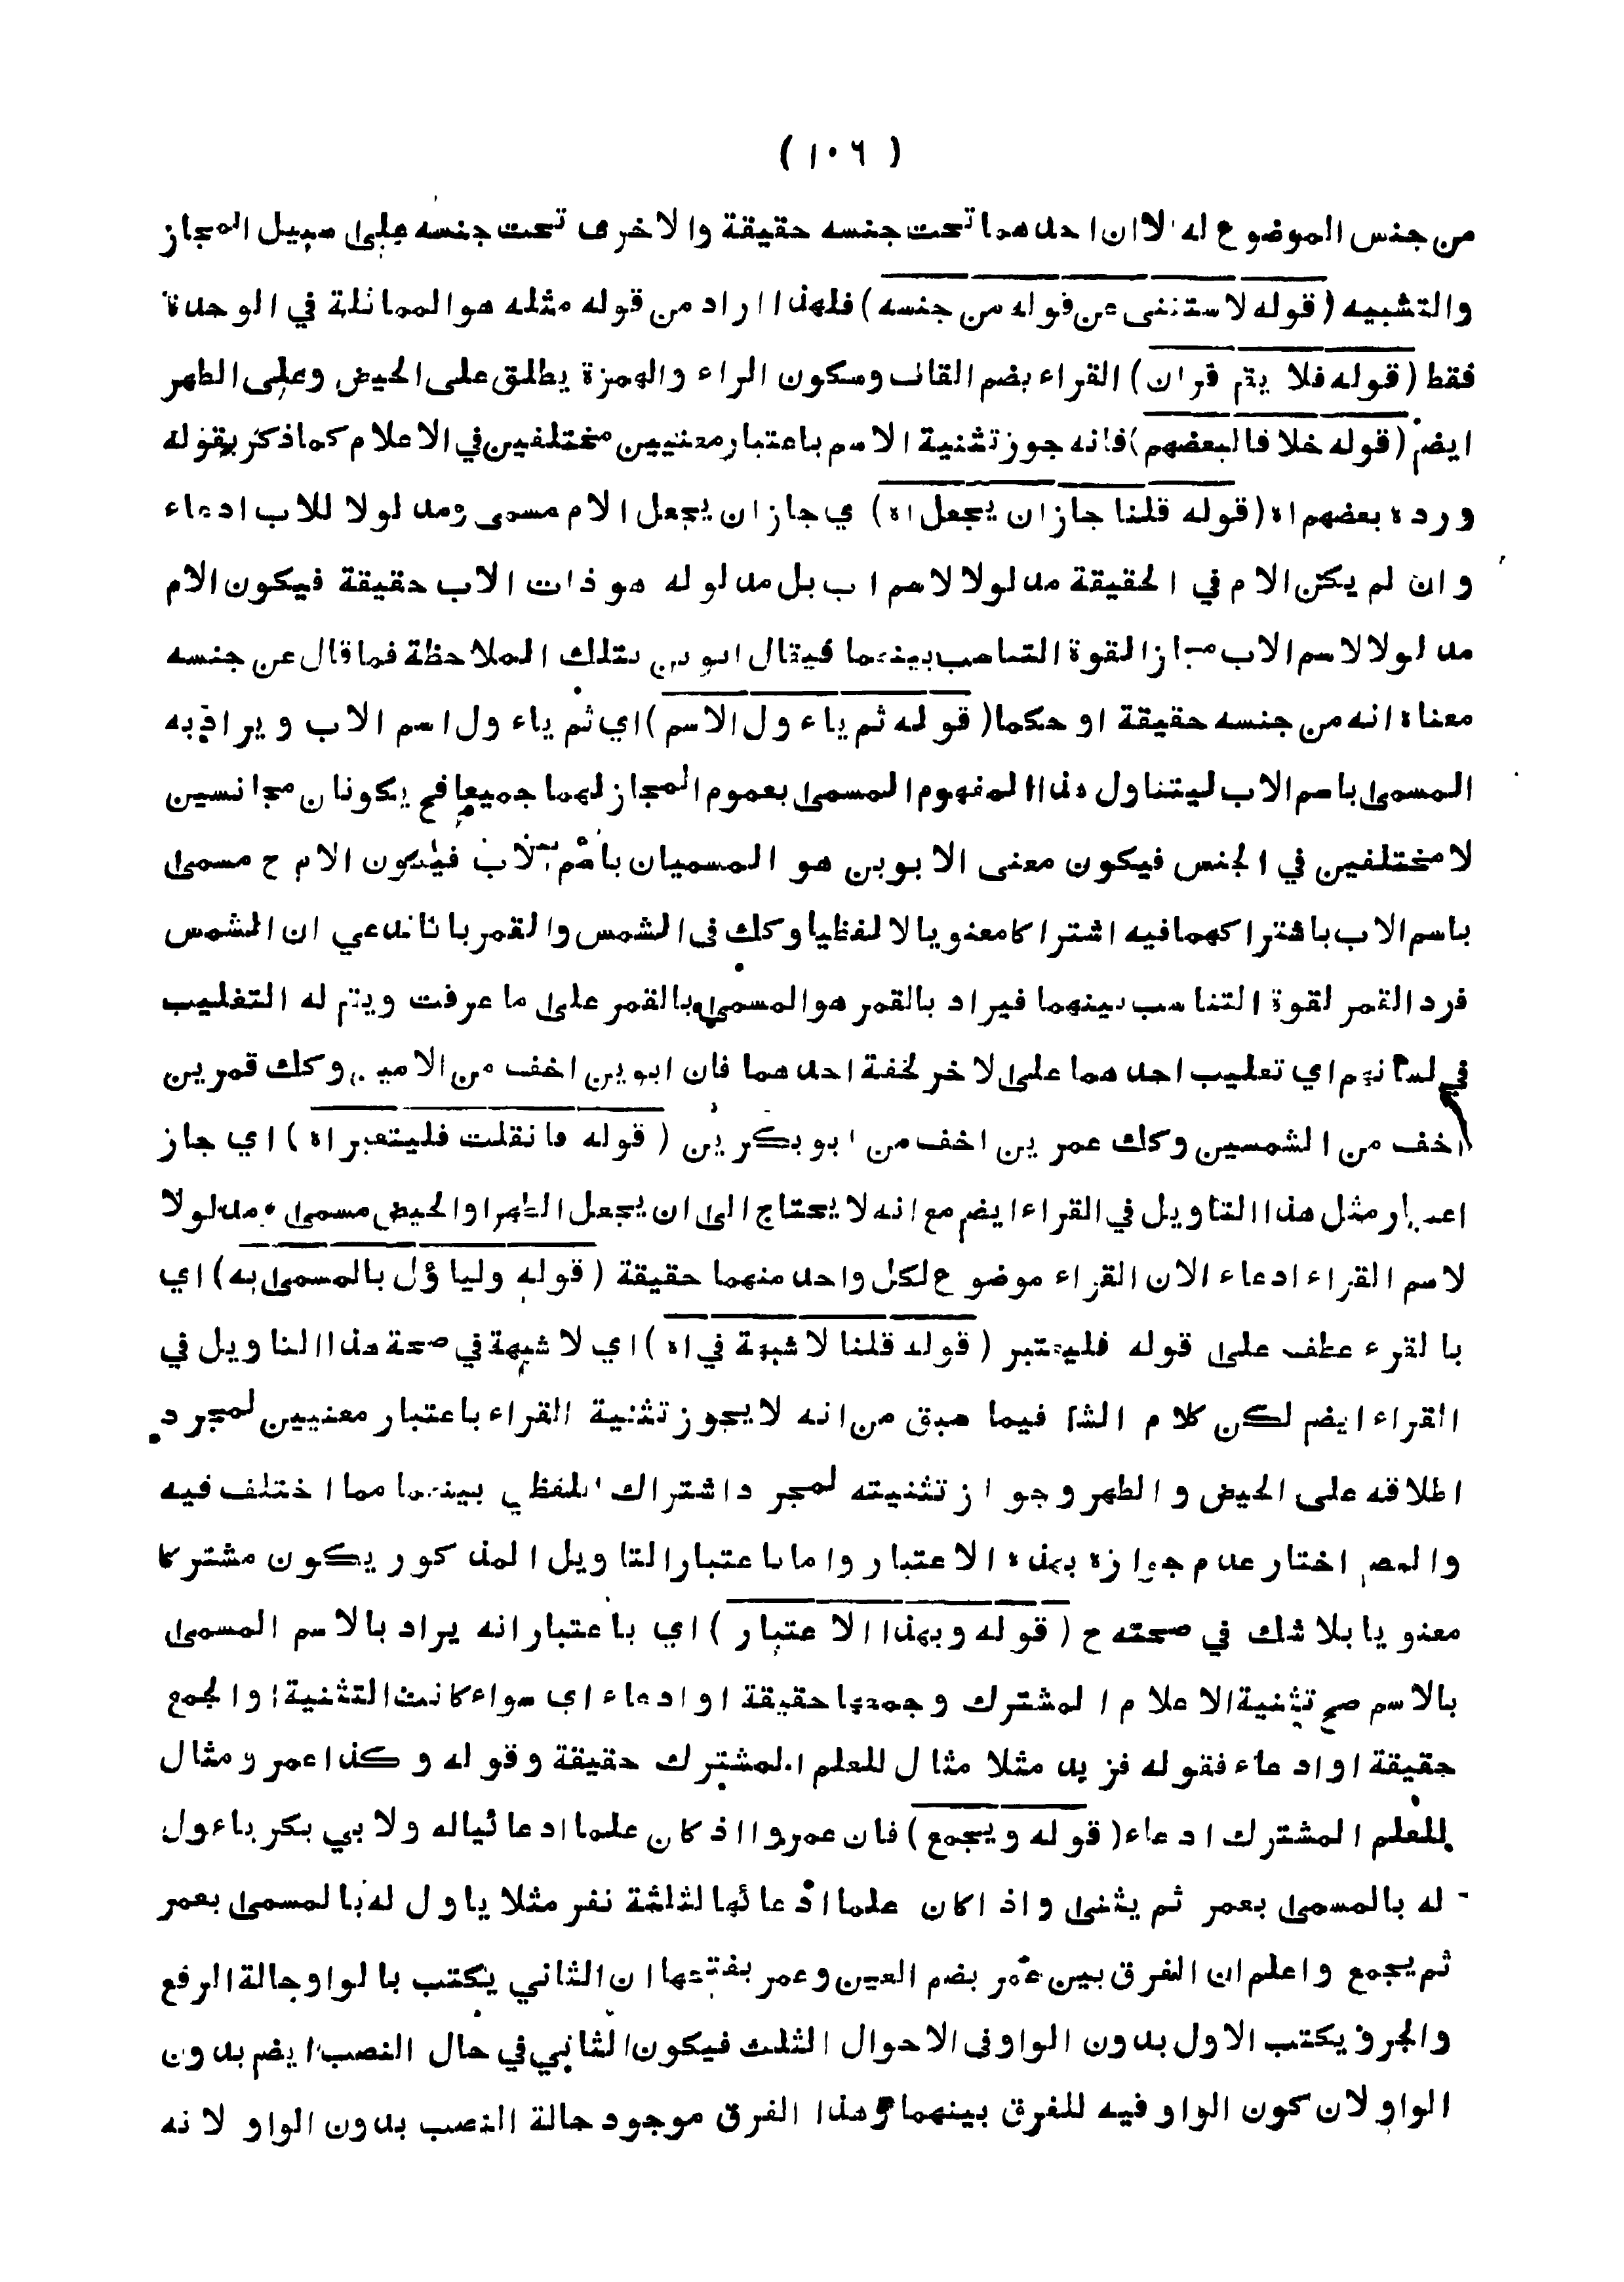 ( ١٠٦ )
من جنس الموضوع له لا ان احدهما تحت جنسه حقيقة والاخرى تحت جنسه على سبيل المجاز
والتشبيه ( قوله لاستغنى عن قوله من جنسه ) فلهذا اراد من قوله مثله هو المماثلة في الوحدة
فقط ( قوله فلا يتم قرآن ) القراء بضم القاف وسكون الراء والهمزة يطلق على الحيض وعلى الطهر
ايضم ( قوله خلافا لبعضهم ) فانه جوز تثنية الاسم باعتبار معنيين مختلفين في الاعلام كما ذكر بقوله
ورده بعضهم اه ( قوله قلنا جاز ان يجعل اه ) ي جاز ان يجعل الام مسمى ومدلولا للاب ادعاء
وان لم يكن الام في الحقيقة مدلولا لاسم اب بل مدلوله هو ذات الاب حقيقة فيكون الام
مدلولا لاسم الاب مجازا لقوة التناسب بينهما فيقال ابوين بتلك الملاحظة فما قال عن جنسه
معناه انه من جنسه حقيقة او حكما ( قوله ثم ياءول الاسم ) اي ثم ياءول اسم الاب ويراد به
المسمى باسم الاب ليتناول هذا المفهوم المسمى بعموم المجاز لهما جميعا فح يكونان مجانسين
لا مختلفين في الجنس فيكون معنى الابوين هو المسميان باسم الاب فيكون الام ح مسمى
باسم الاب باشتراكهما فيه اشتراكا معنويا لا لفظيا وكك فى الشمس والقمر بانا ندعي ان الشمس
فرد القمر لقوة التناسب بينهما فيراد بالقمر هو المسمى بالقمر على ما عرفت ويتم له التغليب
في لسانهم اي تغليب احدهما على لاخر لخفة احدهما فان ابوين اخف من الاميين وكك قمرين
اخف من الشمسين وكك عمرين اخف من ابوبكرين ( قوله فانقلت فليتعبر اه ) اي جاز
اعتبار مثل هذا التاويل في القراء ايضم مع انه لا يحتاج الى ان يجعل الطهر او الحيض مسمى ومدلولا
لاسم القراء ادعاء الان القراء موضوع لكل واحد منهما حقيقة ( قوله وليا ؤل بالمسمى به ) اي
بالقرء عطف على قوله فليعتبر ( قوله قلنا لا شبهة في اه ) اي لا شبهة في صحة هذا التاويل في
القراء ايضم لكن كلام الشا فيما سبق من انه لا يجوز تثنية القراء باعتبار معنيين لمجرد
اطلاقه على الحيض والطهر وجواز تثنيته لمجرد اشتراك اللفظي بينهما مما اختلف فيه
والمصم اختار عدم جوازه بهذه الاعتبار واما باعتبار التاويل المذكور يكون مشتركا
معنويا بلا شك في صحته ح ( قوله وبهذا الاعتبار ) اي باعتبار انه يراد بالاسم المسمى
بالاسم صح تثنية الاعلام المشترك وجمعها حقيقة او ادعاء اي سواء كانت التثنية او الجمع
حقيقة او ادعاء فقوله فزيد مثلا مثال للعلم المشترك حقيقة وقوله وكذا عمر ومثال
للعلم المشترك ادعاء ( قوله ويجمع ) فان عمروا اذ كان علما ادعائيا له ولابي بكر ياءول
له بالمسمى بعمر ثم يثنى واذ اكان علما ادعائها لثلثة نفر مثلا ياول له بالمسمى بعمر
ثم يجمع واعلم ان الفرق بين عمر بضم العين وعمر بفتحها ان الثاني يكتب بالواو حالة الرفع
والجر ويكتب الاول بدون الواو فى الاحوال الثلث فيكون الثاني في حال النصب ايضم بدون
الواو لان كون الواو فيه للفرق بينهما وهذا الفرق موجود حالة النصب بدون الواو لانه